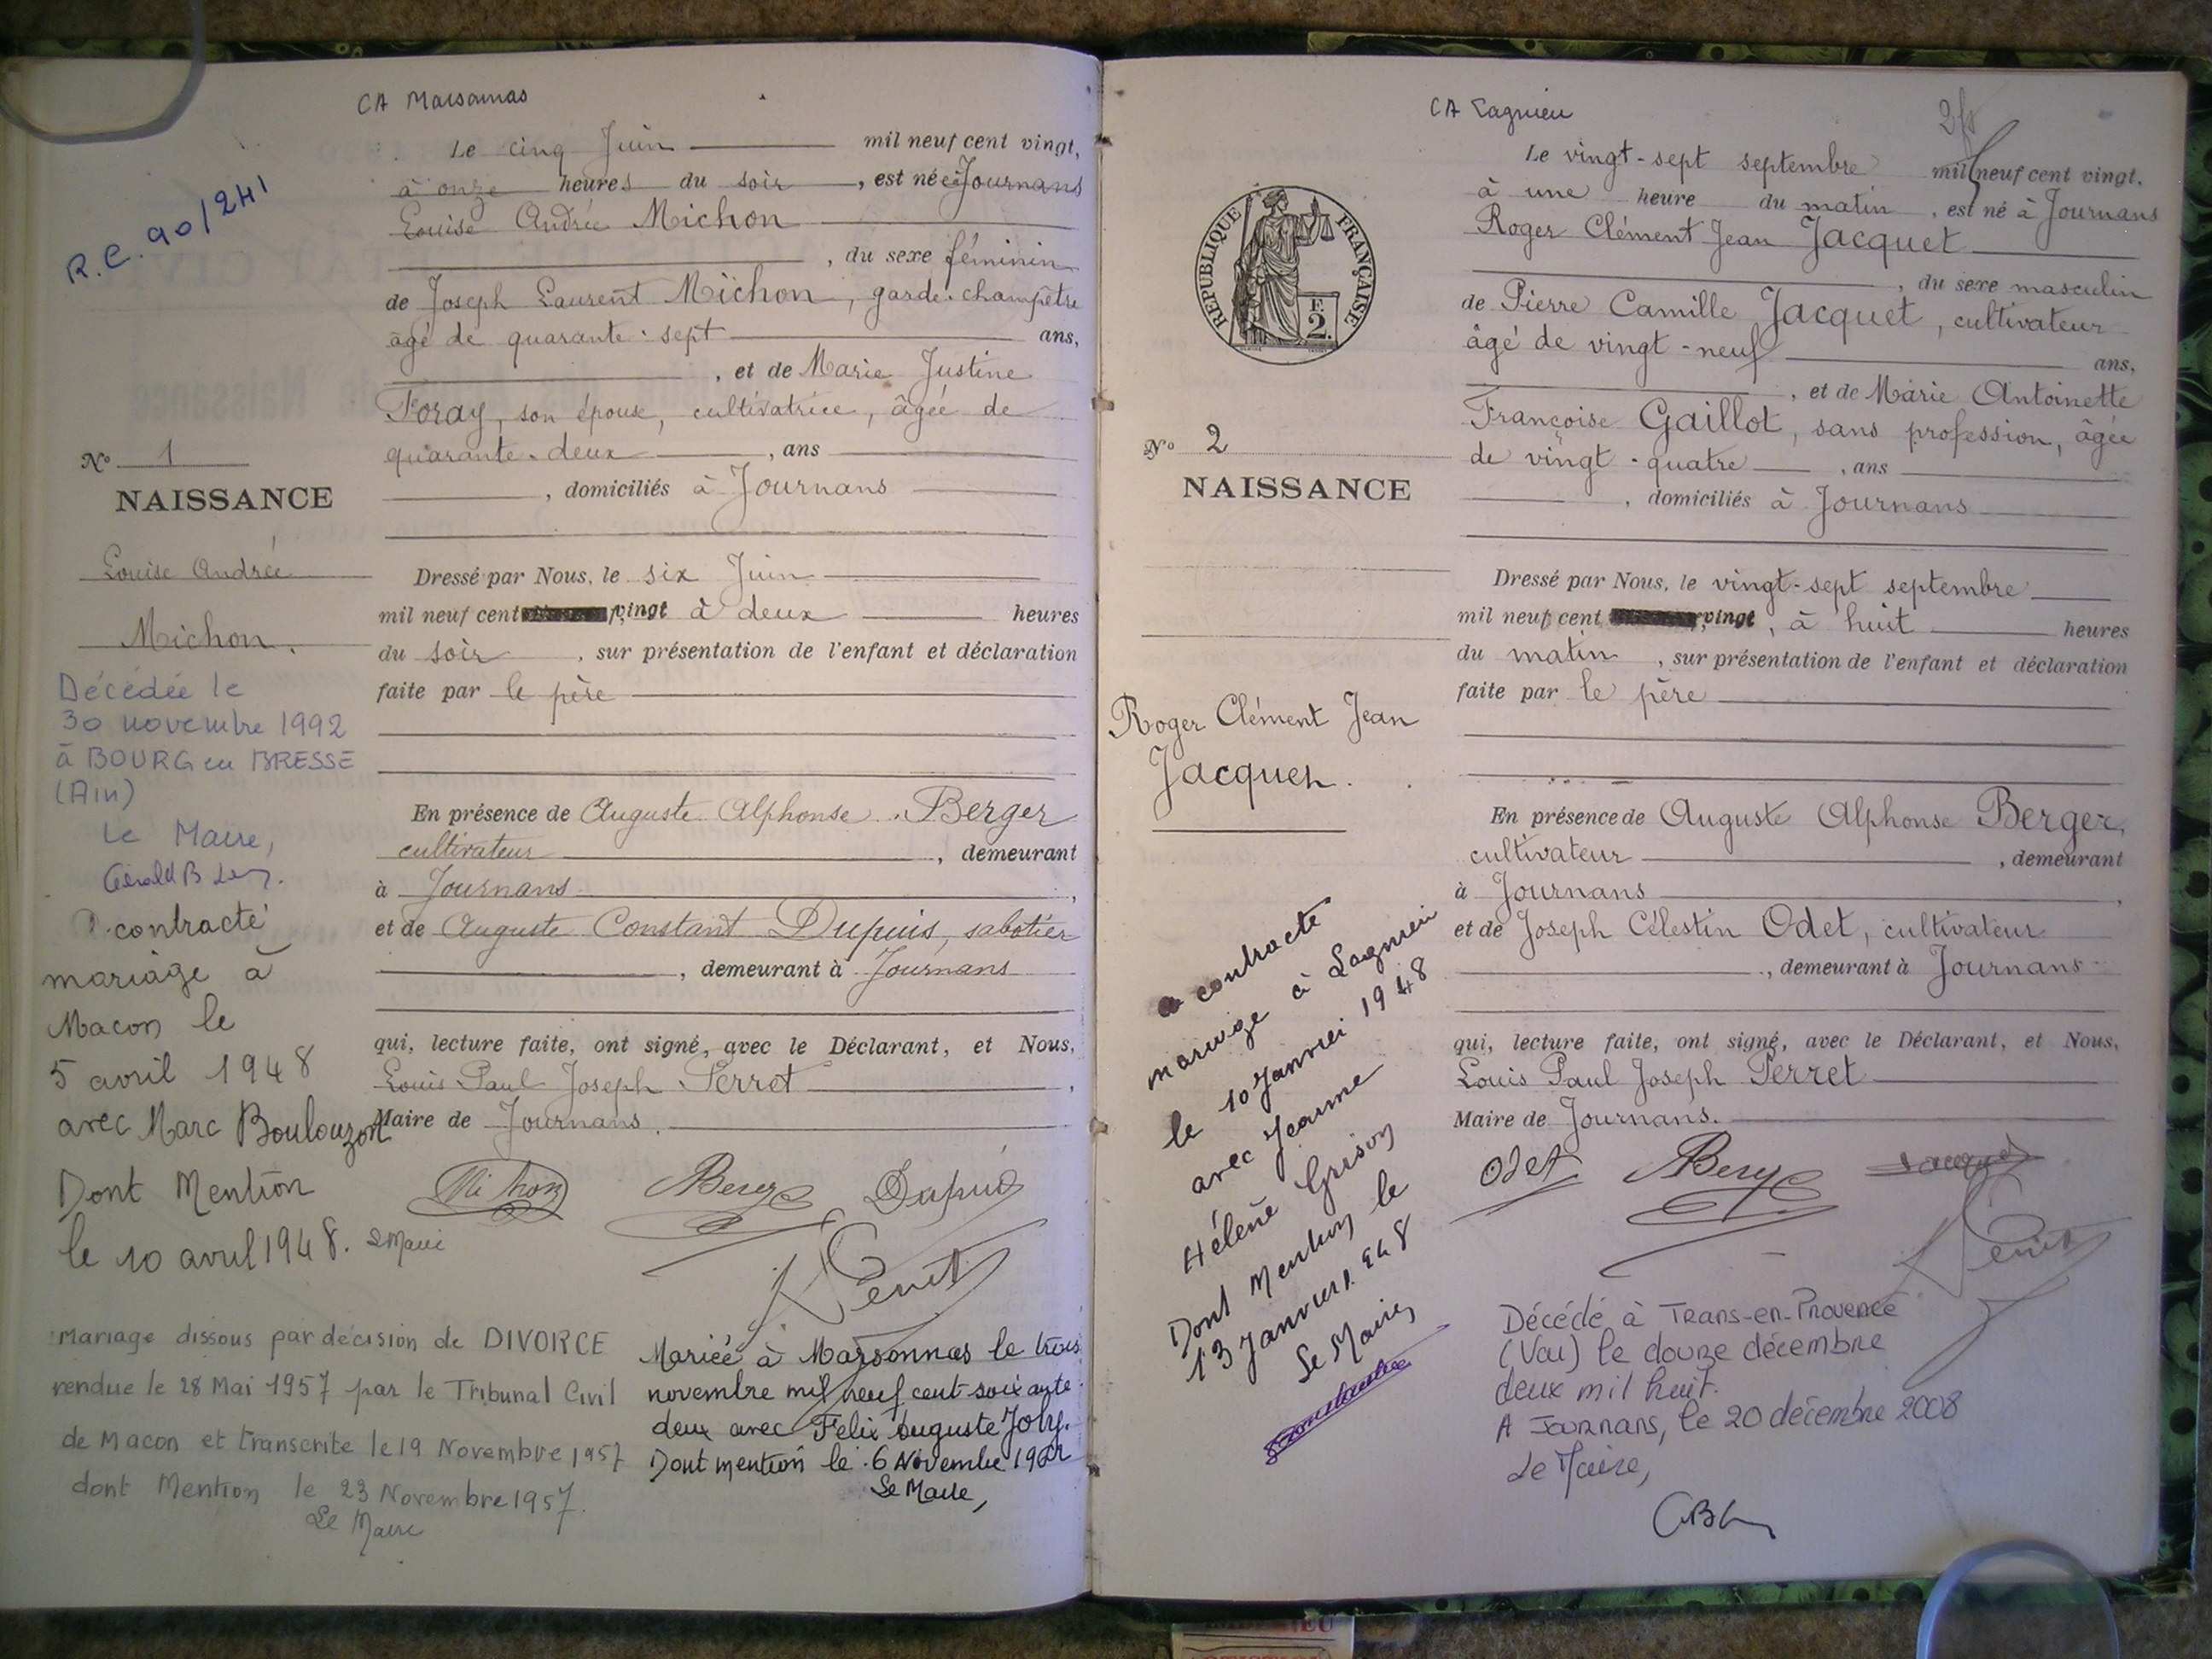 CA Marsonnas
R.C. 90/241
Le cinq Juin mil neuf cent vingt,
à onze heures du soir, est née à Journans
Louise Andrée Michon
, du sexe féminin
de Joseph Laurent Michon, garde-champêtre
âgé de quarante-sept ans,
, et de Marie Justine
Foray, son épouse, cultivatrice, âgée de
quarante-deux, ans
, domiciliés à Journans
Dressé par Nous, le six Juin
mil neuf cent vingt à deux heures
du soir, sur présentation de l'enfant et déclaration
faite par le père
En présence de Auguste Alphonse Berger
cultivateur, demeurant
à Journans,
et de Auguste Constant Dupuis, sabotier
, demeurant à Journans
qui, lecture faite, ont signé, avec le Déclarant, et Nous,
Louis Paul Joseph Perret,
Maire de Journans.
Michon Berger Dupuis
Perret
No 1
NAISSANCE
Louise Andrée
Michon.
Décédée le
30 novembre 1992
à BOURG en BRESSE
(Ain)
Le Maire,
contracté
mariage à
Macon le
5 avril 1948
avec Marc Boulouzon
Dont Mention
le 10 avril 1948. Le Maire
Mariage dissous par décision de DIVORCE
rendue le 28 Mai 1957 par le Tribunal Civil
de Macon et transcrite le 19 Novembre 1957
dont Mention le 23 Novembre 1957.
Le Maire
Mariée à Marsonnas le trois
novembre mil neuf cent soixante
deux avec Felix Auguste Joly.
Dont mention le 6 Novembre 1962
Le Maire,
CA Lagnieu
Le vingt-sept septembre mil neuf cent vingt,
à une heure du matin, est né à Journans
Roger Clément Jean Jacquet
, du sexe masculin
de Pierre Camille Jacquet, cultivateur
âgé de vingt-neuf ans,
, et de Marie Antoinette
Françoise Gaillot, sans profession, âgée
de vingt-quatre, ans
, domiciliés à Journans
Dressé par Nous, le vingt-sept septembre
mil neuf cent vingt, à huit heures
du matin, sur présentation de l'enfant et déclaration
faite par le père
En présence de Auguste Alphonse Berger,
cultivateur, demeurant
à Journans,
et de Joseph Célestin Odet, cultivateur
, demeurant à Journans
qui, lecture faite, ont signé, avec le Déclarant, et Nous,
Louis Paul Joseph Perret
Maire de Journans.
Odet Berger Jacquet
Perret
RÉPUBLIQUE FRANÇAISE
F.
2.
No 2
NAISSANCE
Roger Clément Jean
Jacquet.
a contracté
mariage à Lagnieu
le 10 Janvier 1948
avec Jeanne
Hélène Grison
Dont Mention le
13 Janvier 1948
Le Maire,
Décédé à Trans-en-Provence
(Var) le douze décembre
deux mil huit.
A Journans, le 20 décembre 2008
Le Maire,